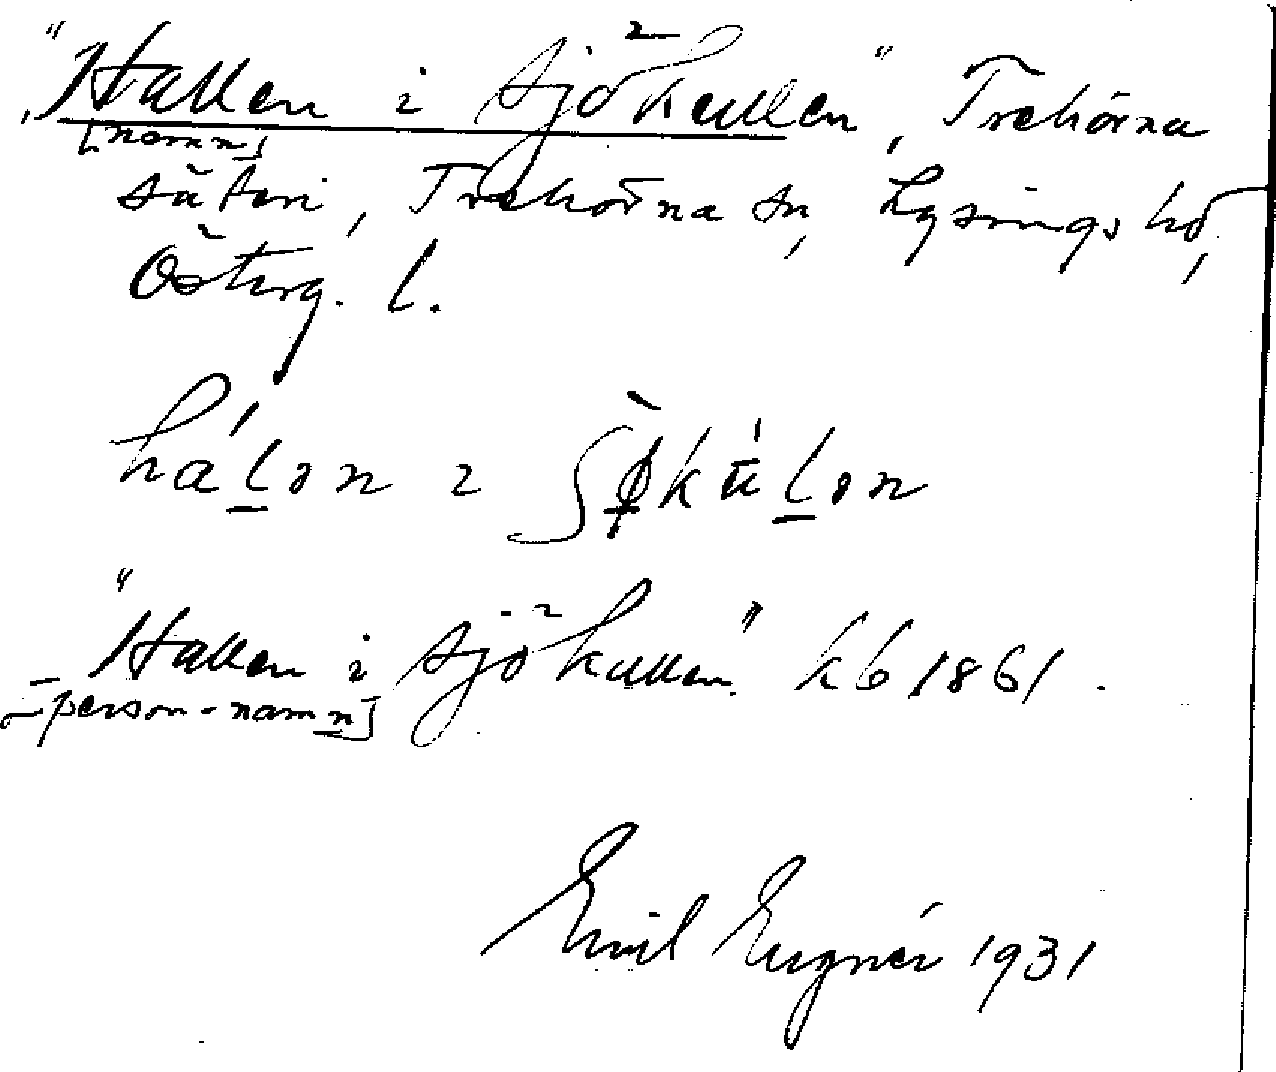 "Hallen i Sjökullen", Trehörna
[namn]
säteri, Trehörna sn, Lysings hd,
Österg. l.
hálən ɪ ʃø̀kúlən
"Hallen i Sjökullen" kb 1861.
[person-namn]
Emil 1931